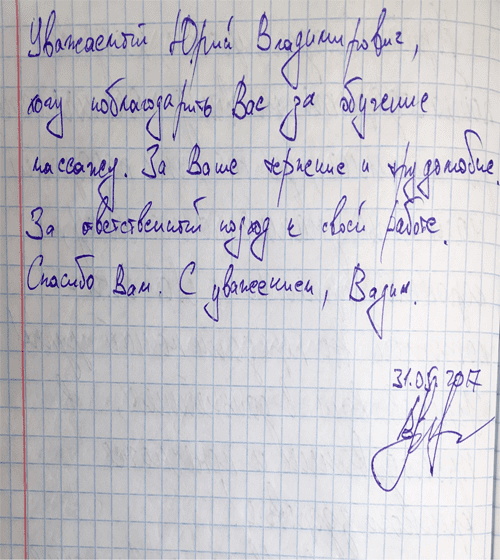 Уважаемый Юрий Владимирович,
хочу поблагодарить Вас за обучение
массажу. За Ваше терпение и трудолюбие.
За ответственный подход к своей работе.
Спасибо Вам. С уважением, Вадим.
31.05.2017